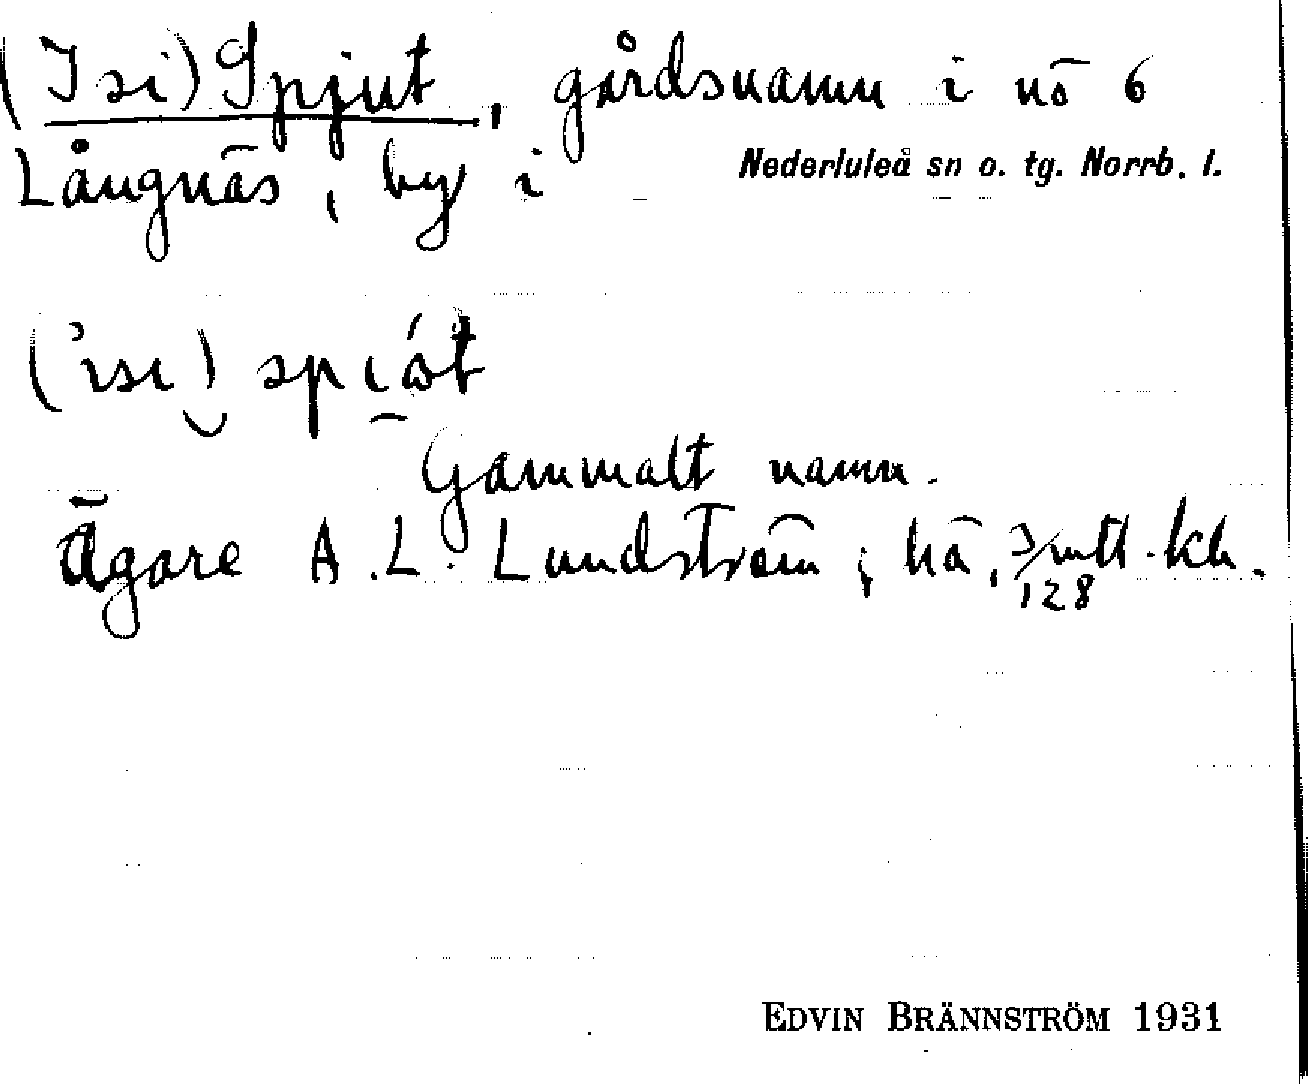 (Isi) Spjut, gårdsnamn i nō 6
Långnäs, by i Nederluleå sn o. tg. Norrb. l.
('ısı) spı̯ót
Gammalt namn.
Ägare A. L. Lundström; hä, 3/128 mtl. kh.
EDVIN BRÄNNSTRÖM 1931